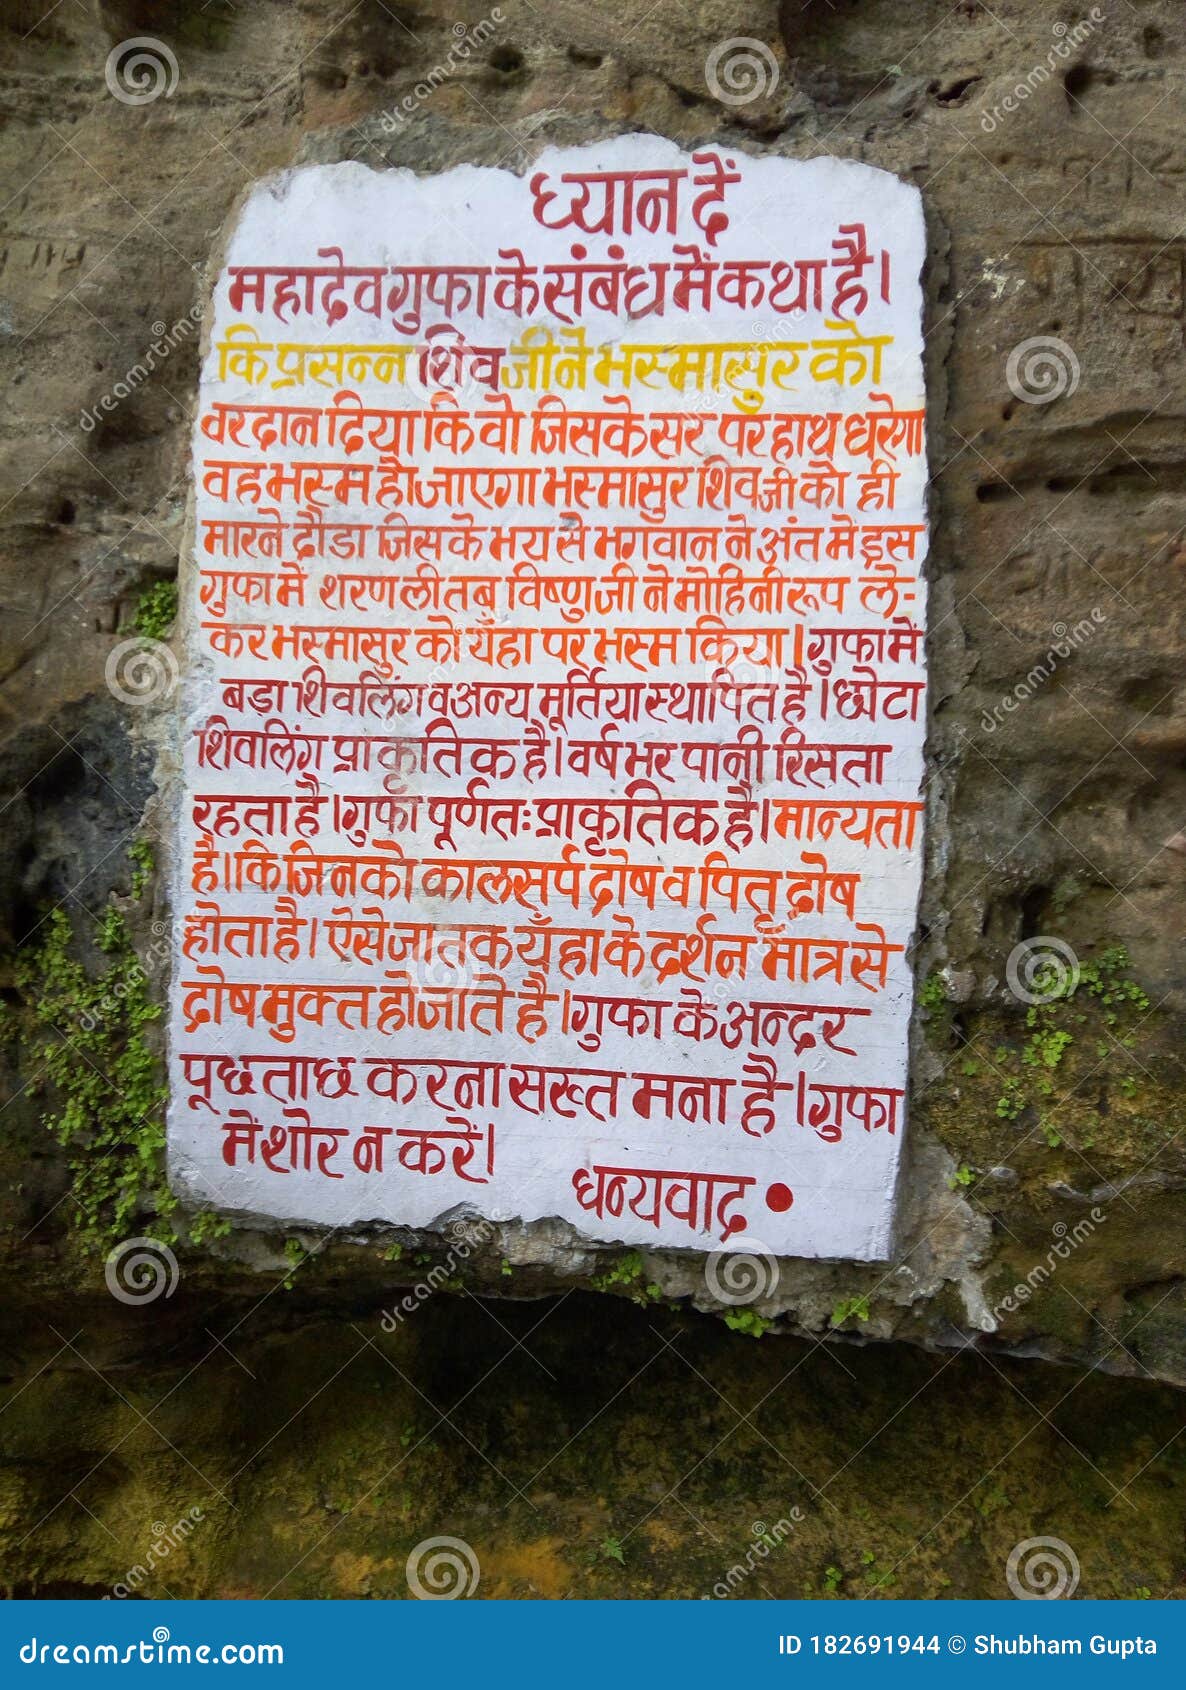 ध्यान दें
महादेव गुफा के संबंध में कथा है।
कि प्रसन्न शिव जी ने भस्मासुर को
वरदान दिया कि वो जिसके सर पर हाथ धरेगा
वह भस्म हो जाएगा भस्मासुर शिव जी को ही
मारने दौडा जिसके भय से भगवान ने अंत में इस
गुफा में शरण ली तब विष्णु जी ने मोहिनी रूप ले-
कर भस्मासुर को यँहा पर भस्म किया। गुफा में
बड़ा शिवलिंग व अन्य मूर्तिया स्थापित है। छोटा
शिवलिंग प्राकृतिक है। वर्ष भर पानी रिसता
रहता है। गुफा पूर्णतः प्राकृतिक है। मान्यता
है। कि जिनको कालसर्प दोष व पितृ दोष
होता है। ऐसे जातक यँहा के दर्शन मात्र से
दोष मुक्त हो जाते है। गुफा के अन्दर
पूछताछ करना सख्त मना है। गुफा
में शोर न करें।
धन्यवाद
dreamstime.com
ID 182691944 © Shubham Gupta